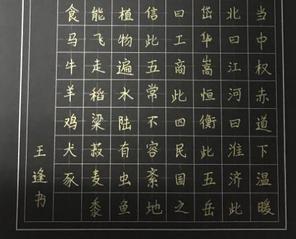 当中权赤道下温暖
北曰江河曰淮济此
岱华嵩恒衡此五岳
曰工商此四民国之
信此五常不容紊地
植物遍水陆有虫鱼
能飞走稻粱菽麦黍
食马牛羊鸡犬豕
王逢书